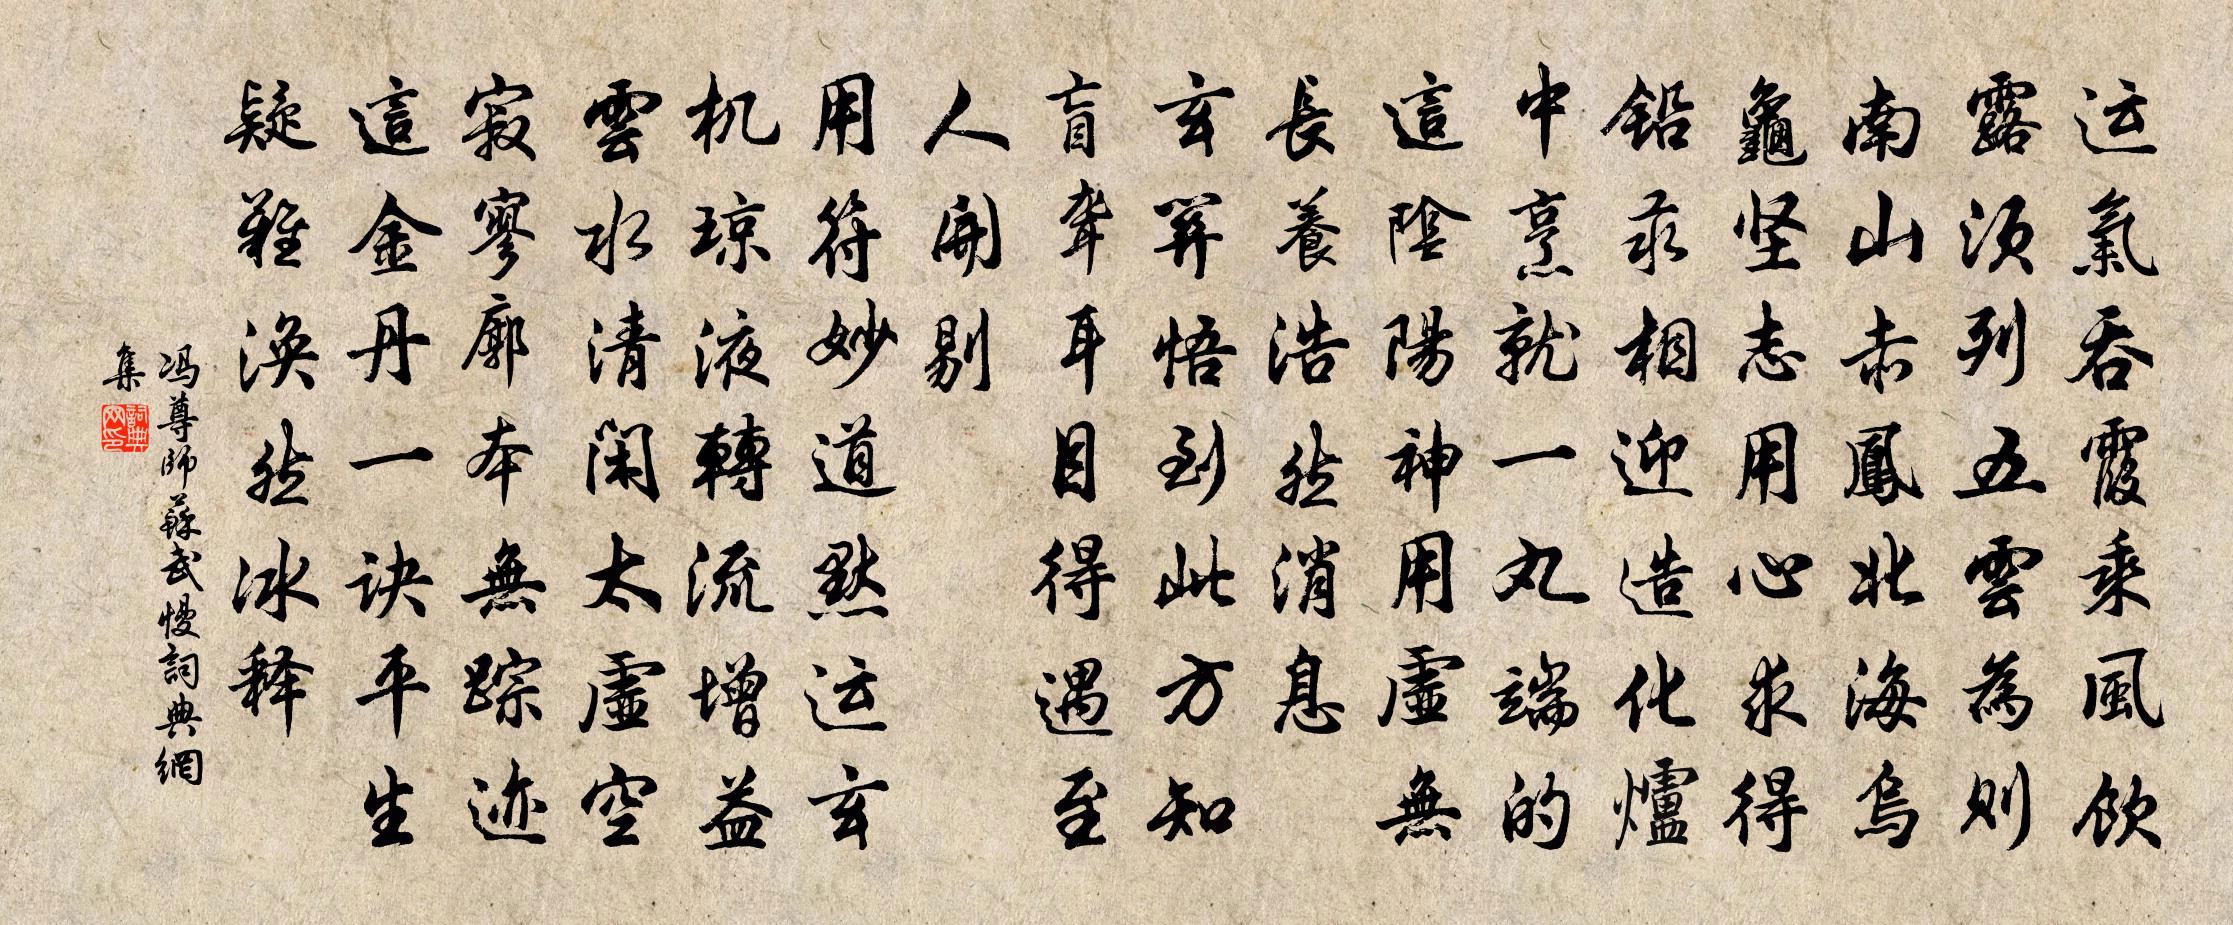 运氣吞霞乘風飲
露须列五雲為則
南山赤鳳北海烏
龜坚志用心求得
铅汞相迎造化爐
中烹就一丸端的
這陰陽神用虛無
長養浩然消息
玄関悟到此方知
盲聋耳目得遇至
人開剔
用符妙道默运玄
机琼液轉流增益
雲水清闲太虛空
寂寥廓本無踪迹
這金丹一诀平生
疑難渙然冰释
冯尊師蘇武慢詞典網
集
詞典
网印